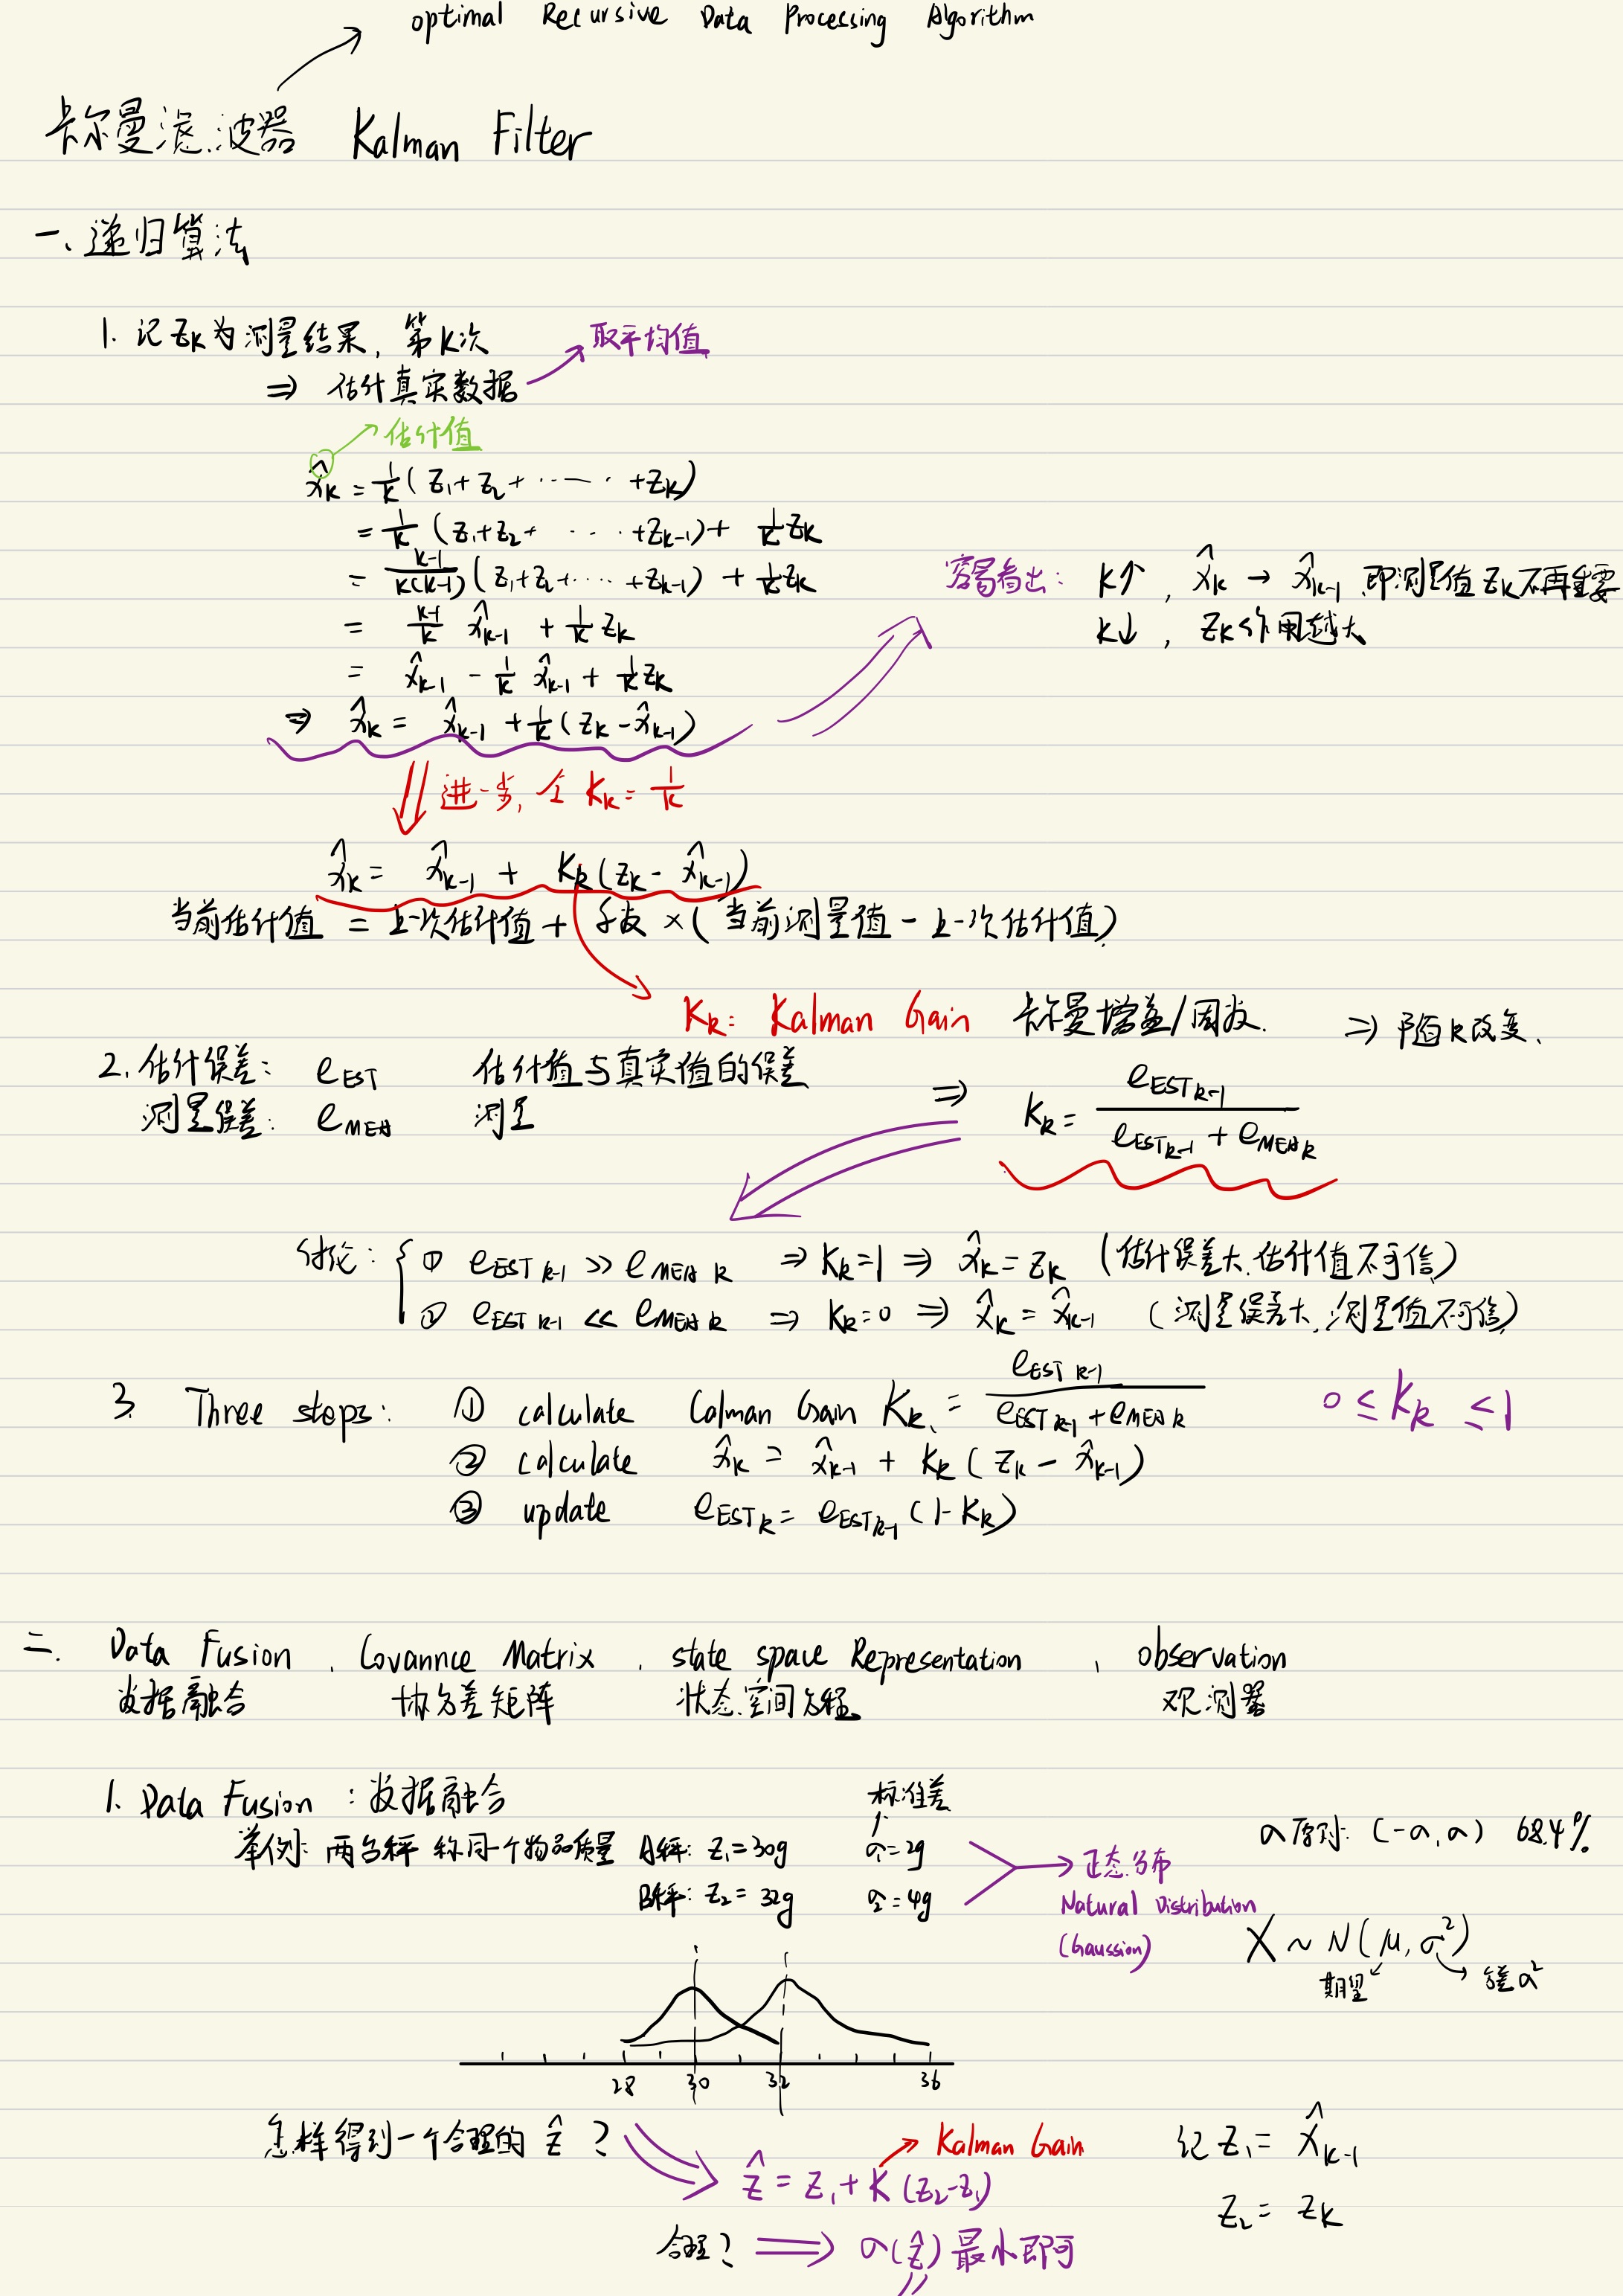 optimal Recursive Data Processing Algorithm
卡尔曼滤波器 Kalman Filter
一、递归算法
1. 记 Zk 为测量结果, 第k次
⇒ 估计真实数据 → 取平均值
估计值
x̂k = 1/k (Z1+Z2+······+Zk)
= 1/k (Z1+Z2+····+Zk-1) + 1/k Zk
= (k-1)/(k(k-1)) (Z1+Z2+····+Zk-1) + 1/k Zk
= (k-1)/k x̂k-1 + 1/k Zk
= x̂k-1 - 1/k x̂k-1 + 1/k Zk
⇒ x̂k = x̂k-1 + 1/k (Zk - x̂k-1)
容易看出: k↑, x̂k → x̂k-1 即测量值 Zk 不再重要
k↓, Zk 作用越大
进一步, 令 Kk = 1/k
x̂k = x̂k-1 + Kk (Zk - x̂k-1)
当前估计值 = 上一次估计值 + 系数 × (当前测量值 - 上一次估计值)
Kk: Kalman Gain 卡尔曼增益/因数. ⇒ 随k改变.
2. 估计误差: eEST 估计值与真实值的误差
测量误差: eMEA 测量
⇒ Kk = eESTk-1 / (eESTk-1 + eMEAk)
讨论: { ① eESTk-1 >> eMEAk ⇒ Kk=1 ⇒ x̂k = Zk (估计误差大, 估计值不可信)
① eESTk-1 << eMEAk ⇒ Kk=0 ⇒ x̂k = x̂k-1 (测量误差大, 测量值不可信)
3 Three steps: ① calculate Calman Gain Kk = eESTk-1 / (eESTk-1 + eMEAk) 0 ≤ Kk ≤ 1
② calculate x̂k = x̂k-1 + Kk (Zk - x̂k-1)
③ update eESTk = eESTk-1 (1-Kk)
二. Data Fusion, Covannce Matrix, state space Representation, observation
数据融合 协方差矩阵 状态空间方程 观测器
1. Data Fusion: 数据融合 标准差
举例: 两台秤 称同一个物品质量 A秤: Z1=30g σ1=2g
B秤: Z2=32g σ2=4g
正态分布
Natural Distribution
(Gaussion)
σ原则: (-σ, σ) 68.4%
X ~ N(μ, σ²)
期望 方差σ²
28 30 32 36
怎样得到一个合理的 ẑ ?
ẑ = Z1 + K (Z2-Z1)
Kalman Gain
记 Z1 = x̂k-1
Z2 = Zk
合理? ⇒ σ(ẑ) 最小即可